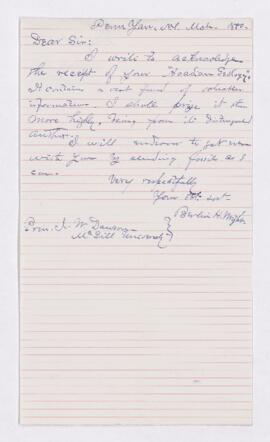 Penn Yan, N.Y.
Dear Sir:
I write to acknowledge
the receipt of your "Acadian Geology."
It contains a vast fund of
information. I shall prize it the
more highly, being from its distinguished
author.
I will endeavor to get even
with you by sending fossils as I
can.
Very respectfully
Your Obt. Svt.
Berlin H. Wright
Prin. J. W. Dawson
McGill University